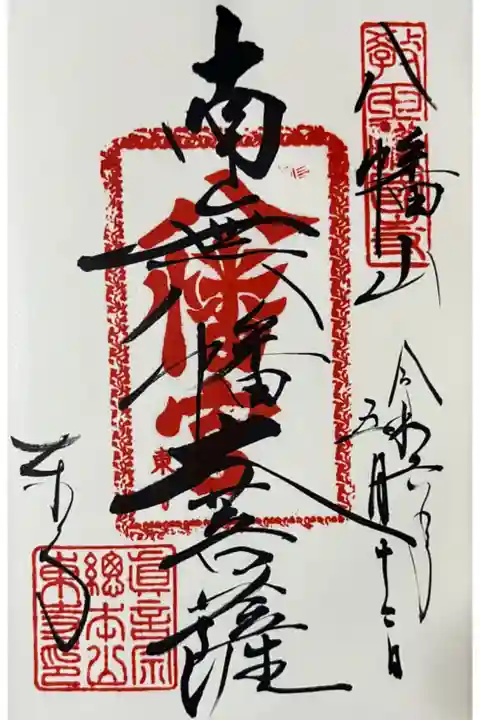 八幡山
令和六年
五月十二日
南無八幡大菩薩
東寺
真言宗
總本山
東寺印